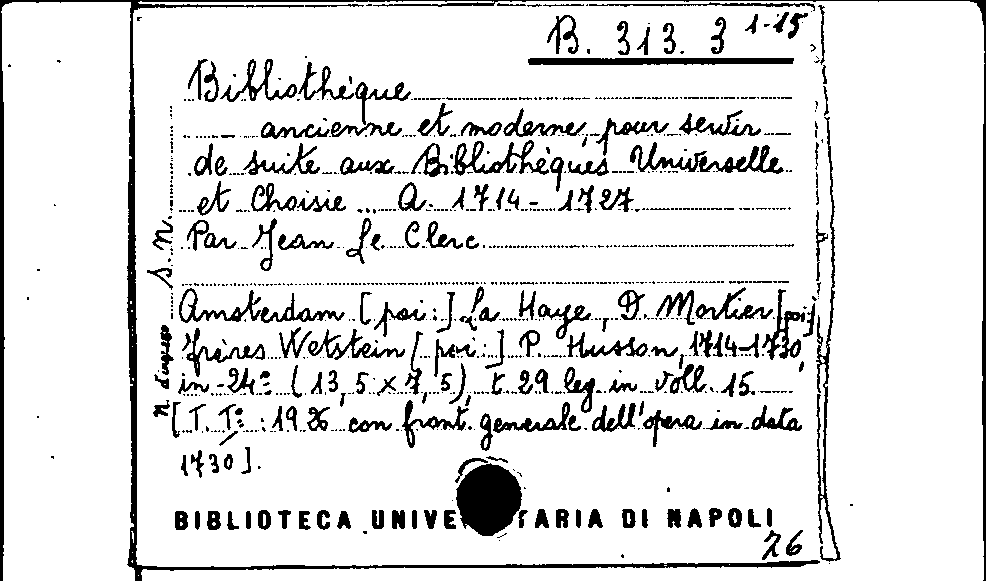 B. 313. 3 1-15
Bibliothéque
- ancienne et moderne, pour servir
de suite aux Bibliothéques Universelle
et Choisie ... A. 1714 - 1727
Par Jean Le Clerc
Amsterdam [poi:] La Haye, D. Mortier [poi:]
frères Wetstein [poi:] P. Husson, 1714-1730,
in-24º (13,5 x 7,5), t. 29 leg. in voll. 15.
[T. Tº: 1926 con front. generale dell'opera in data
1730].
N. d'ingresso S. N.
BIBLIOTECA UNIVE TARIA DI NAPOLI
26